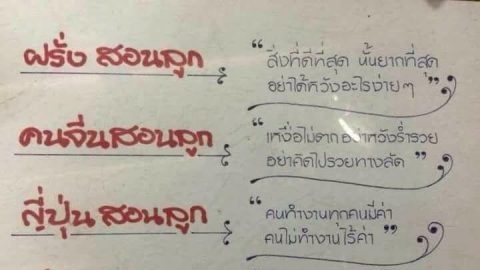 ฝรั่ง สอนลูก
“ สิ่งที่ดีที่สุด นั้นยากที่สุด
อย่าได้หวังอะไรง่ายๆ ”
คนจีนสอนลูก
“ เหงื่อไม่ตก อย่าหวังร่ำรวย
อย่าคิดไปรวยทางลัด ”
ญี่ปุ่น สอนลูก
“ คนทำงานทุกคนมีค่า
คนไม่ทำงานไร้ค่า ”